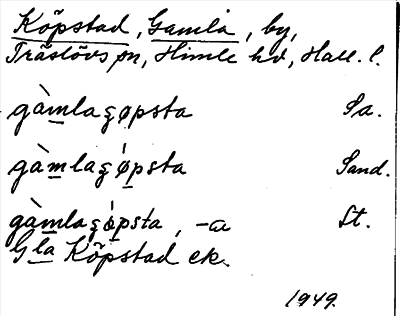 Köpstad, Gamla, by,
Träslövs sn, Himle hd, Hall. l.
gàmlaȿøpsta Sa.
gàmlaȿǿpsta Sand.
gàmlaȿǿpsta, -a St.
Gla Köpstad ek.
1949.